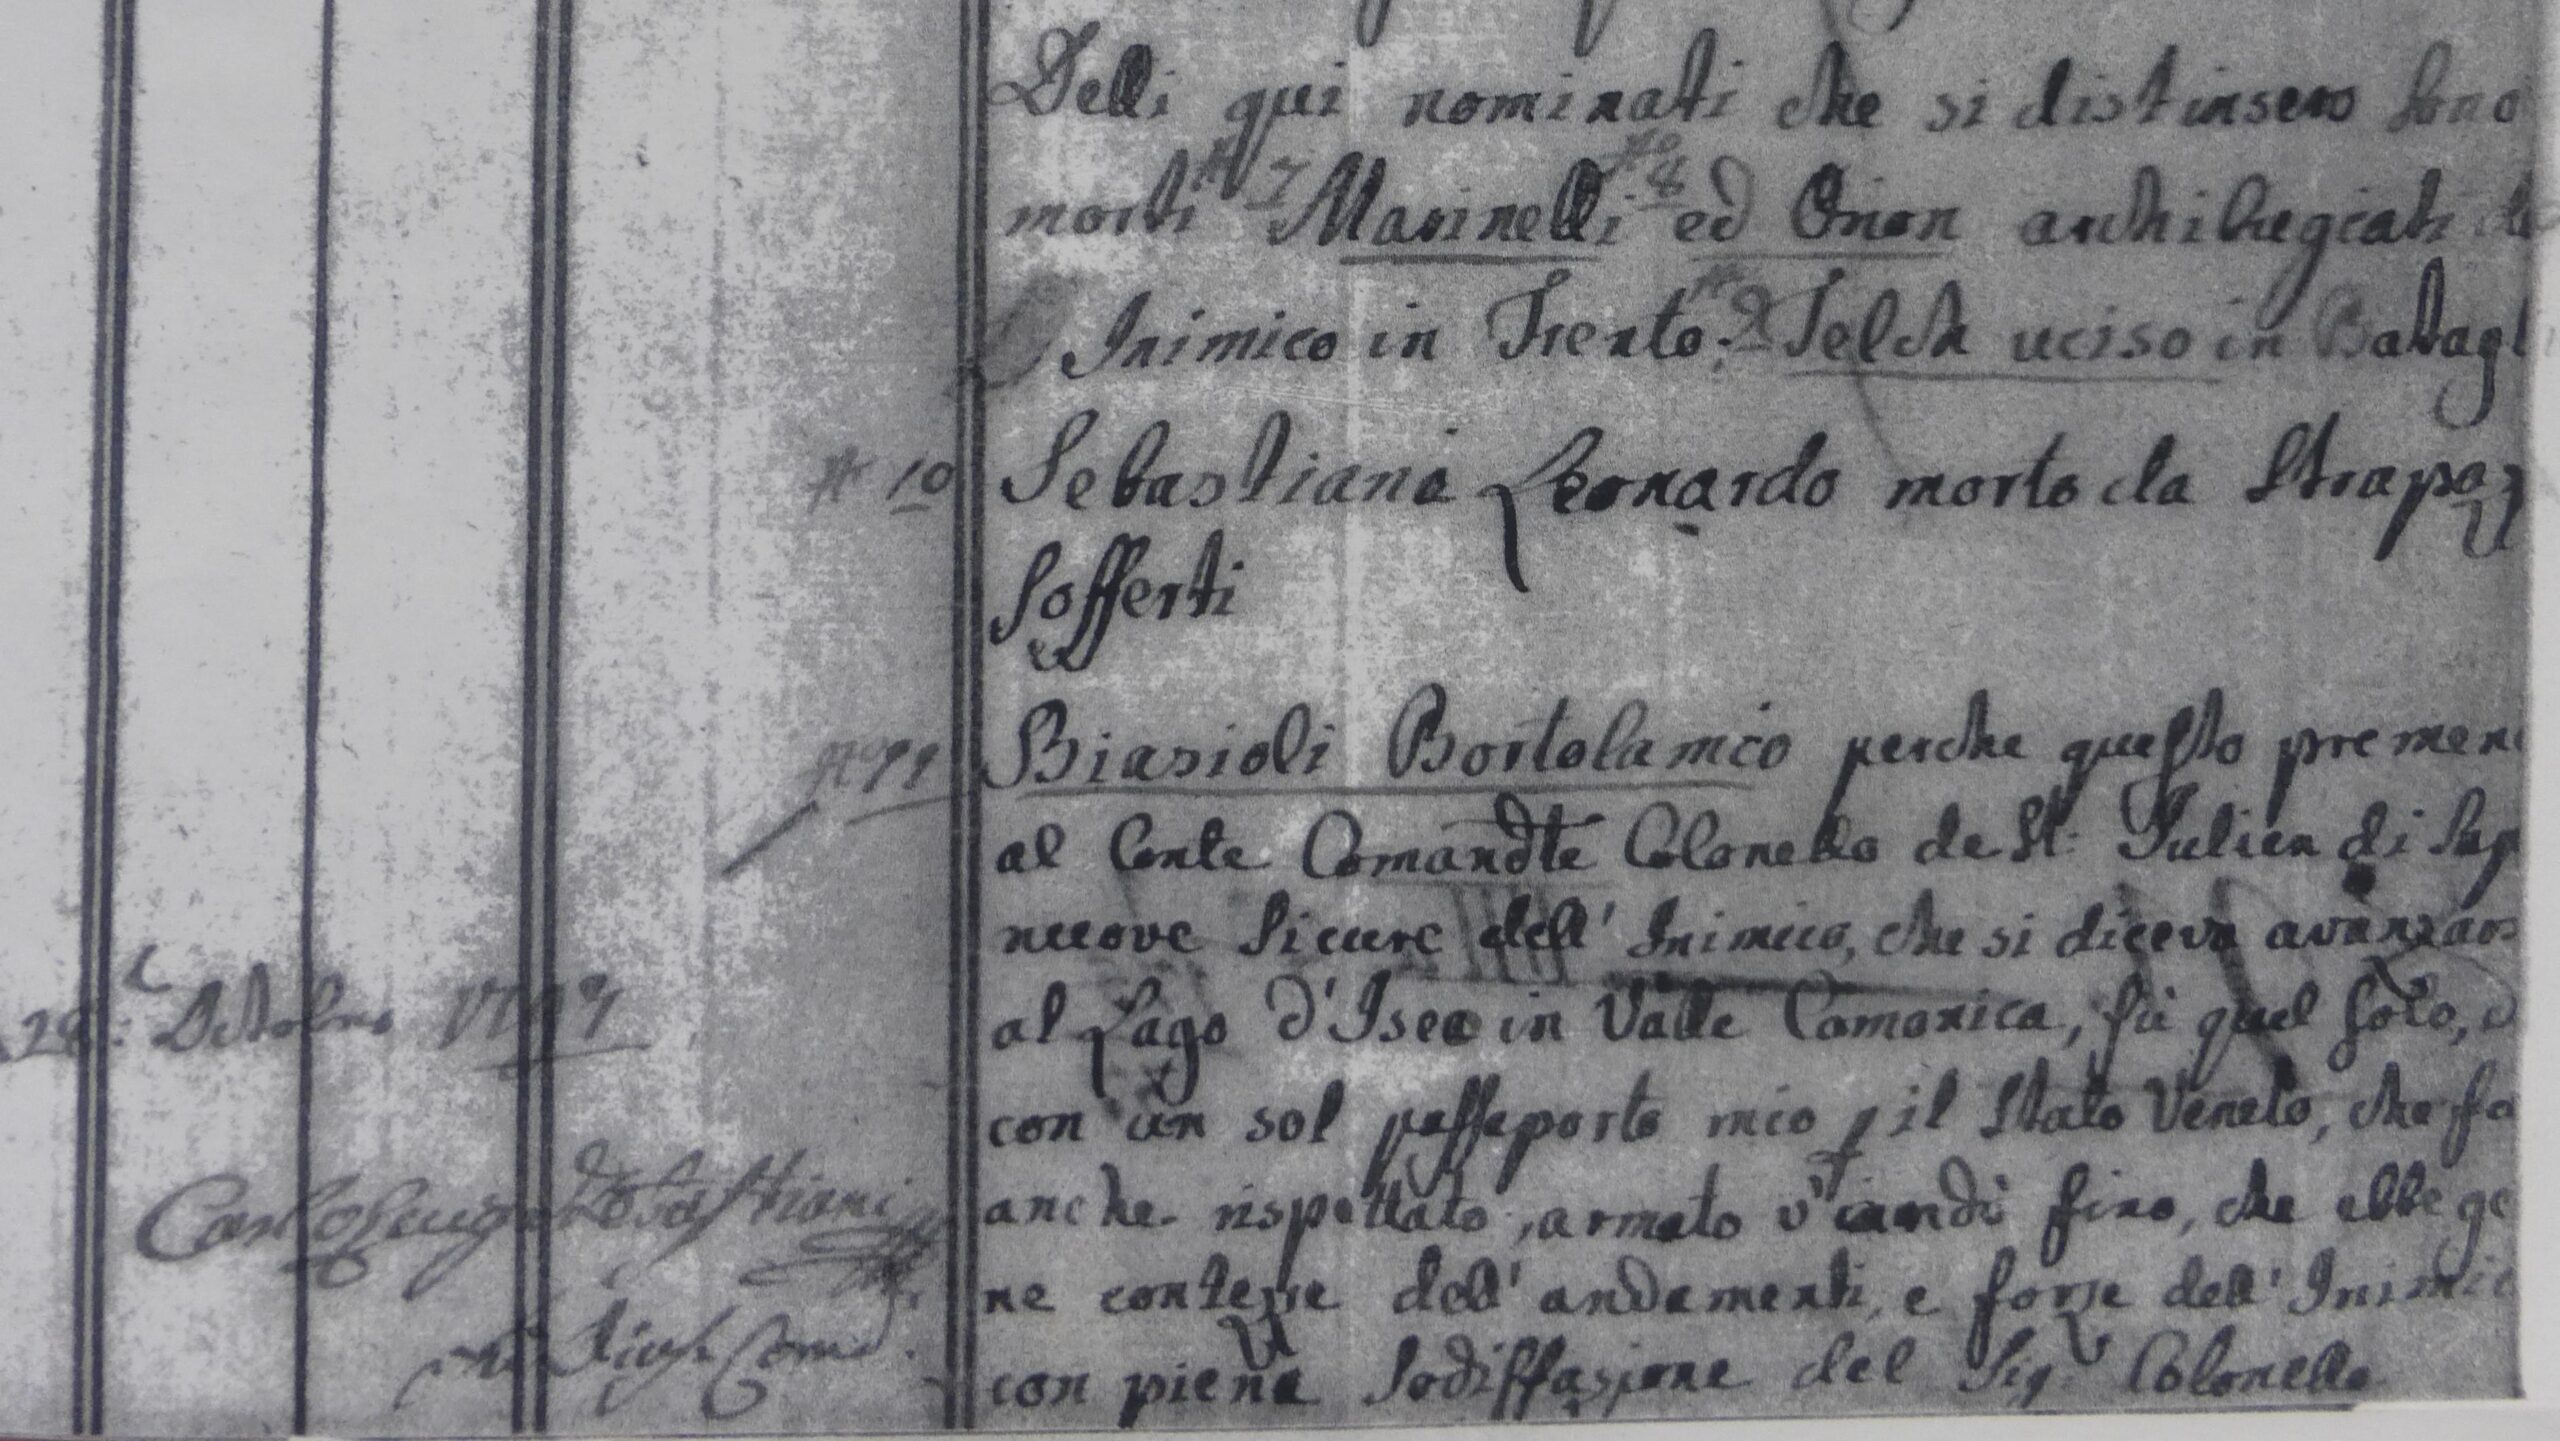 Delli qui nominati che si distinsero sono
morti N 7 Marinelli No 8 ed Onon archibugiati
Inimico in Trento: N 9 Telch uciso in Batagl
N 10 Sebastiani Leonardo morto da Strapaz
Sofferti
No 11 Biasioli Bortolameo perche questo premen
al Conte Comandte Colonello de St: Julien di Sap
nuove sicure dell' Inimico, che si diceva avanzars
al Lago d'Iseo in Valle Camonica, fù quel solo,
con un sol passaporto mio p il Stato Veneto, che fo
anche rispettato, armato v'andò fino, che ebbe ge
ne contezze dell' andamenti, e forze dell' Inimic
con piena sodisfasione del Sigr Colonello
28: Octobre 1797
Carlo Sebastiani
Com